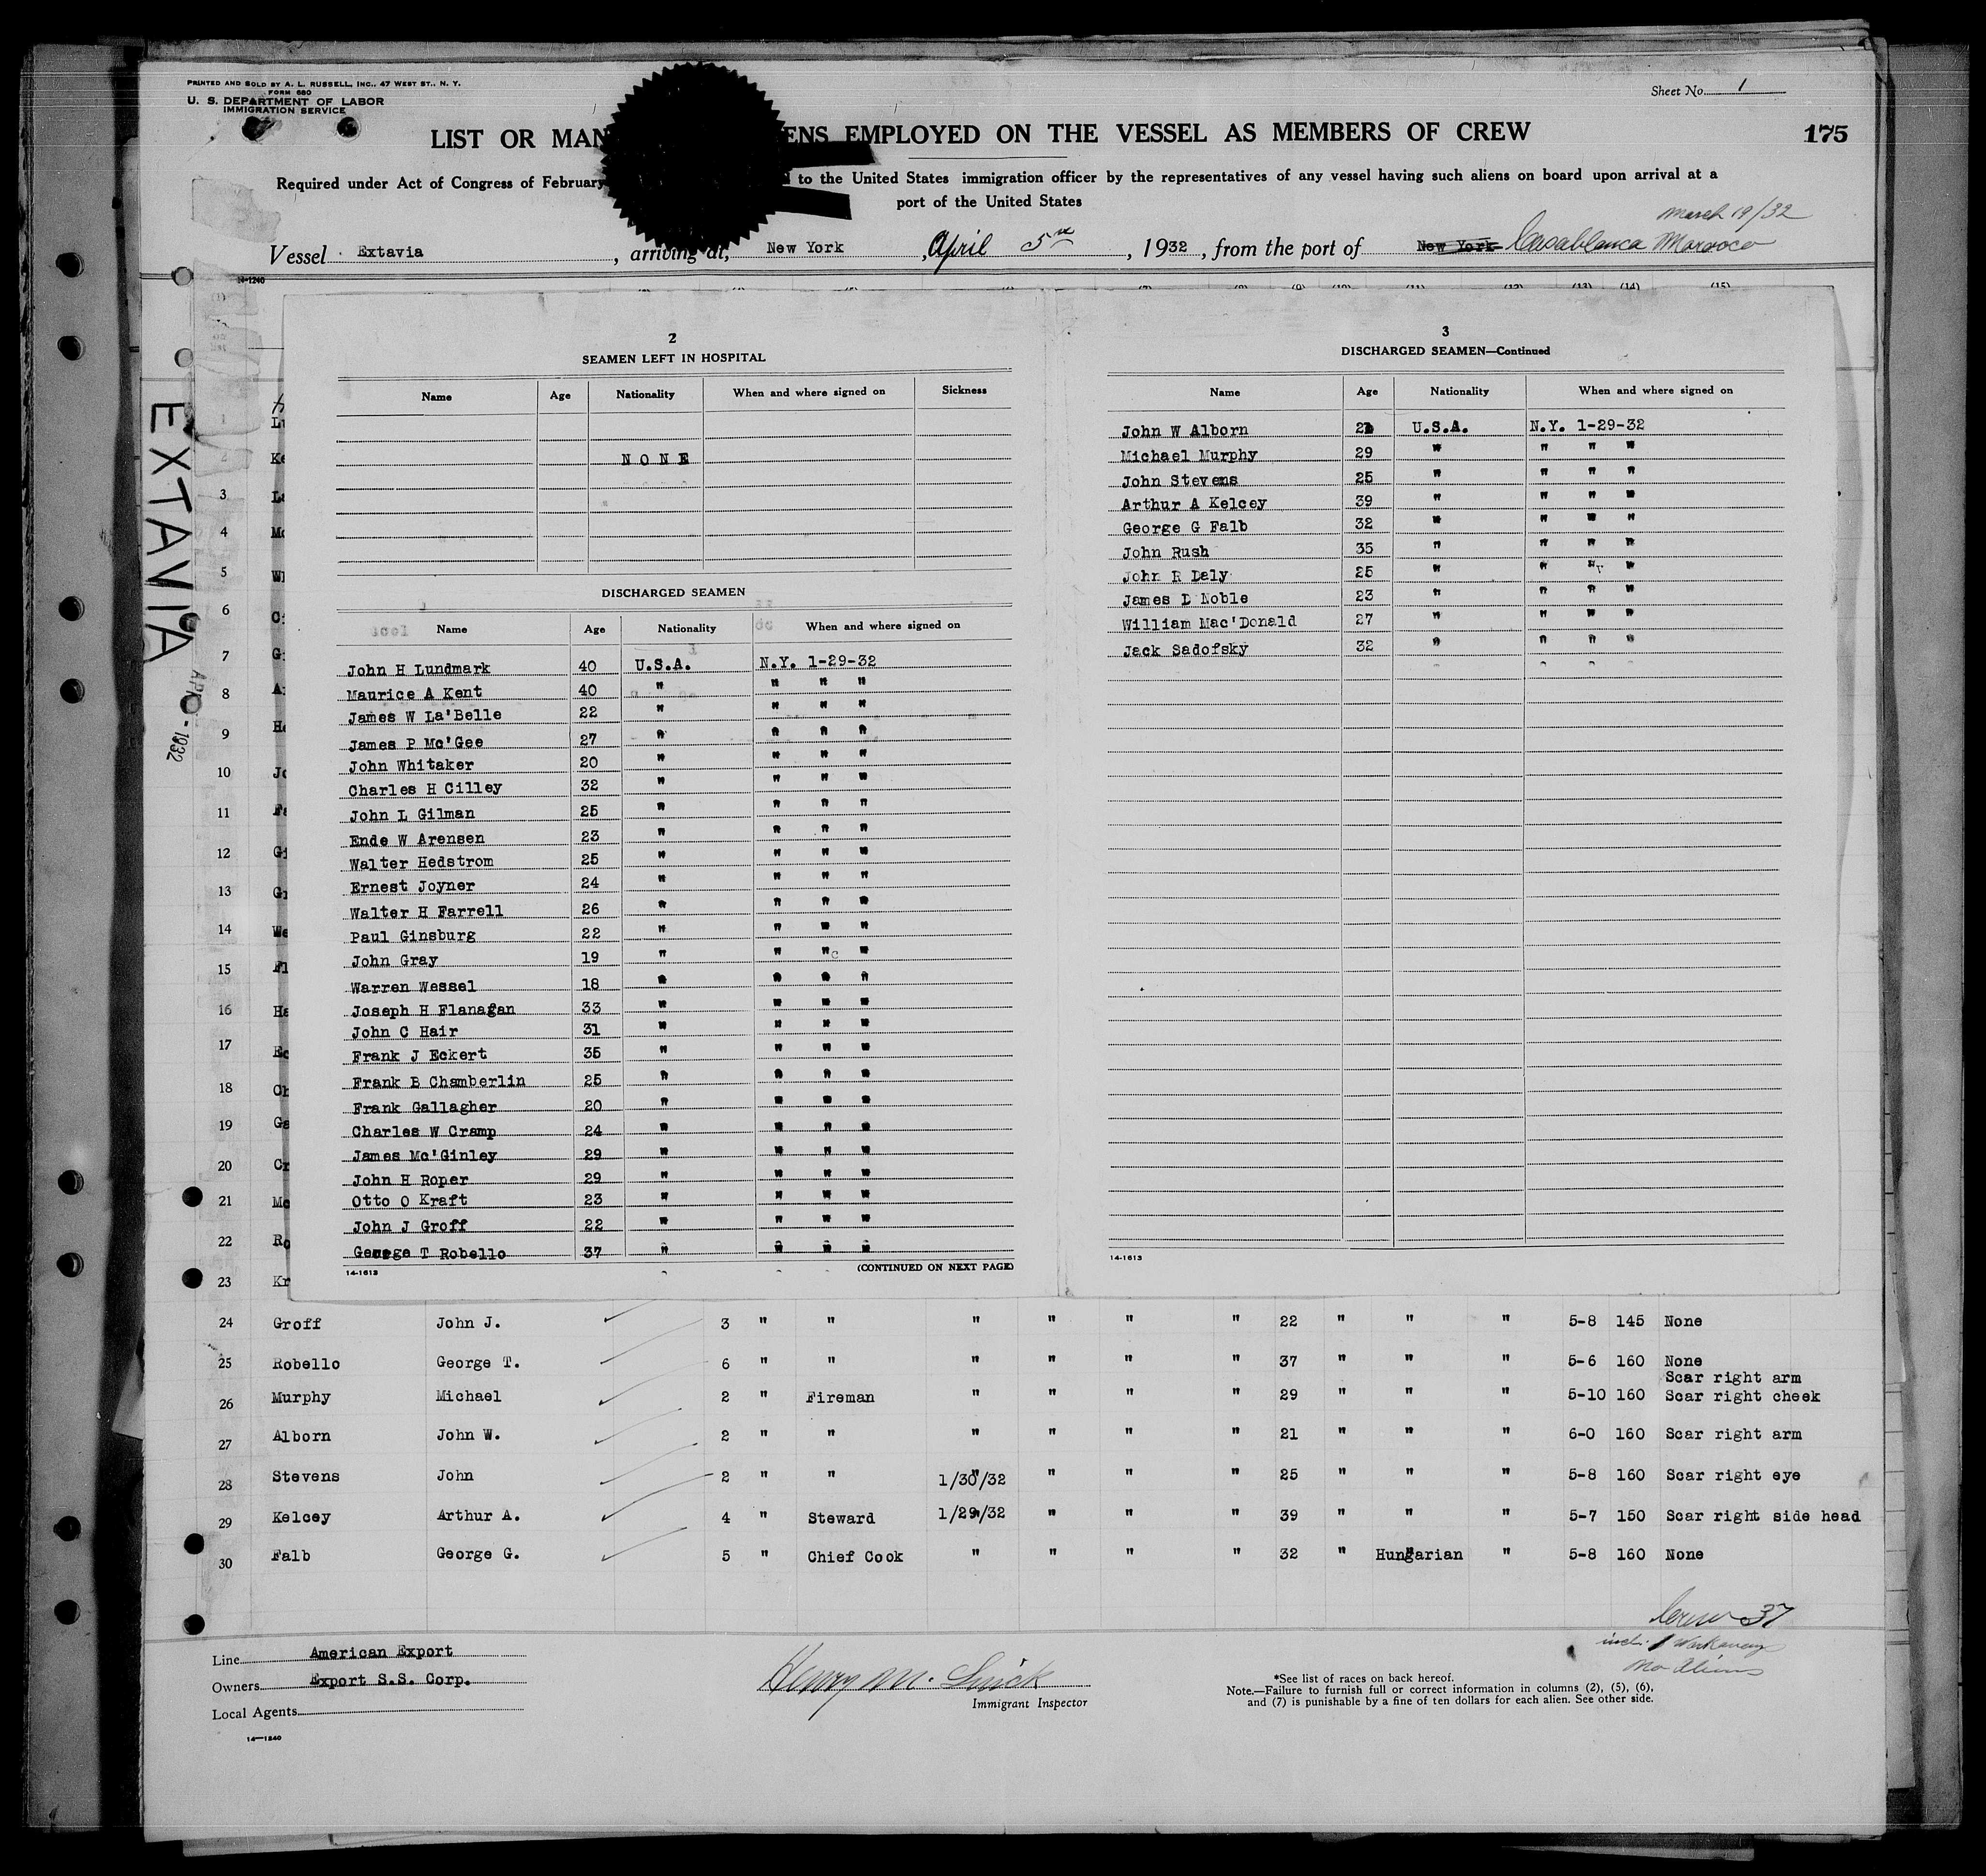 PRINTED AND SOLD BY A. L. RUSSELL, INC., 47 WEST ST., N. Y.
FORM 680
U. S. DEPARTMENT OF LABOR
IMMIGRATION SERVICE
Sheet No. 1
LIST OR MAN ENS EMPLOYED ON THE VESSEL AS MEMBERS OF CREW
175
Required under Act of Congress of February to the United States immigration officer by the representatives of any vessel having such aliens on board upon arrival at a
port of the United States
March 19/32
Vessel Extavia, arriving at, New York, April 5th, 1932, from the port of New York Casablanca Morocco
14-1240
EXTAVIA
1932
2
SEAMEN LEFT IN HOSPITAL
Name Age Nationality When and where signed on Sickness
NONE
DISCHARGED SEAMEN
Name Age Nationality When and where signed on
John H Lundmark 40 U.S.A. N.Y. 1-29-32
Maurice A Kent 40 " " " "
James W La'Belle 22 " " " "
James P Mc'Gee 27 " " " "
John Whitaker 20 " " " "
Charles H Cilley 32 " " " "
John L Gilman 25 " " " "
Ende W Arensen 23 " " " "
Walter Hedstrom 25 " " " "
Ernest Joyner 24 " " " "
Walter H Farrell 26 " " " "
Paul Ginsburg 22 " " " "
John Gray 19 " " " "
Warren Wessel 18 " " " "
Joseph H Flanagan 33 " " " "
John C Hair 31 " " " "
Frank J Eckert 35 " " " "
Frank B Chamberlin 25 " " " "
Frank Gallagher 20 " " " "
Charles W Cramp 24 " " " "
James Mc'Ginley 29 " " " "
John H Roper 29 " " " "
Otto O Kraft 23 " " " "
John J Groff 22 " " " "
George T Robello 37 " " " "
14-1613
(CONTINUED ON NEXT PAGE)
3
DISCHARGED SEAMEN—Continued
Name Age Nationality When and where signed on
John W Alborn 21 U.S.A. N.Y. 1-29-32
Michael Murphy 29 " " " "
John Stevens 25 " " " "
Arthur A Kelcey 39 " " " "
George G Falb 32 " " " "
John Rush 35 " " " "
John R Daly 25 " " " "
James L Noble 23 " " " "
William Mac'Donald 27 " " " "
Jack Sadofsky 32 " " " "
14-1613
1
2
3
4
5
6
7
8
9
10
11
12
13
14
15
16
17
18
19
20
21
22
23 Kr
24 Groff John J. 3 " " " " " " 22 " " " 5-8 145 None
25 Robello George T. 6 " " " " " " 37 " " " 5-6 160 None
Scar right arm
26 Murphy Michael 2 " Fireman " " " " 29 " " " 5-10 160 Scar right cheek
27 Alborn John W. 2 " " " " " " 21 " " " 6-0 160 Scar right arm
28 Stevens John 2 " " 1/30/32 " " " 25 " " " 5-8 160 Scar right eye
29 Kelcey Arthur A. 4 " Steward 1/29/32 " " " 39 " " " 5-7 150 Scar right side head
30 Falb George G. 5 " Chief Cook " " " " 32 " Hungarian " 5-8 160 None
Crew 37
incl. 1 Workaway
No Aliens
Line American Export
Owners Export S.S. Corp.
Local Agents
14—1240
Henry M.
Immigrant Inspector
*See list of races on back hereof.
Note.—Failure to furnish full or correct information in columns (2), (5), (6),
and (7) is punishable by a fine of ten dollars for each alien. See other side.